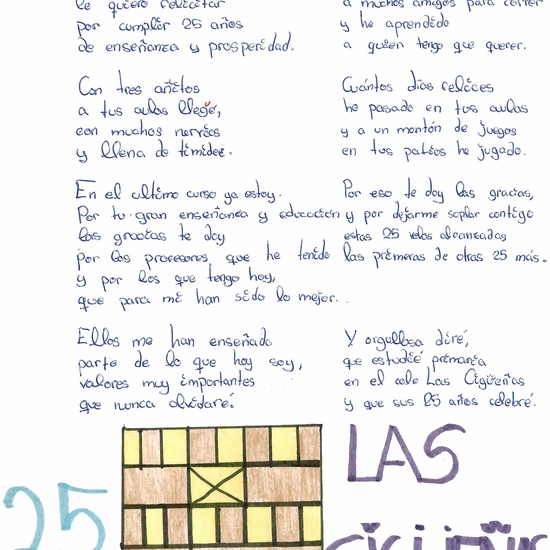 le quiero felicitar
por cumplir 25 años
de enseñanza y prosperidad.
Con tres añitos
a tus aulas llegé,
con muchos nervios
y llena de timidez.
En el ultimo curso ya estoy.
Por tu gran enseñanza y educación
las gracias te doy
por los profesores que he tenido
y por los que tengo hoy,
que para mí han sido lo mejor.
Ellos me han enseñado
parte de lo que hoy soy,
valores muy importantes
que nunca olvidaré.
a muchos amigos para correr
y he aprendido
a quien tengo que querer.
Cuántos días felices
he pasado en tus aulas
y a un montón de juegos
en tus patios he jugado.
Por eso te doy las gracias,
y por dejarme soplar contigo
estas 25 velas alcanzadas
las primeras de otras 25 más.
Y orgullosa diré,
que estudié primaria
en el cole Las Cigüeñas
y que sus 25 años celebré.
25
LAS